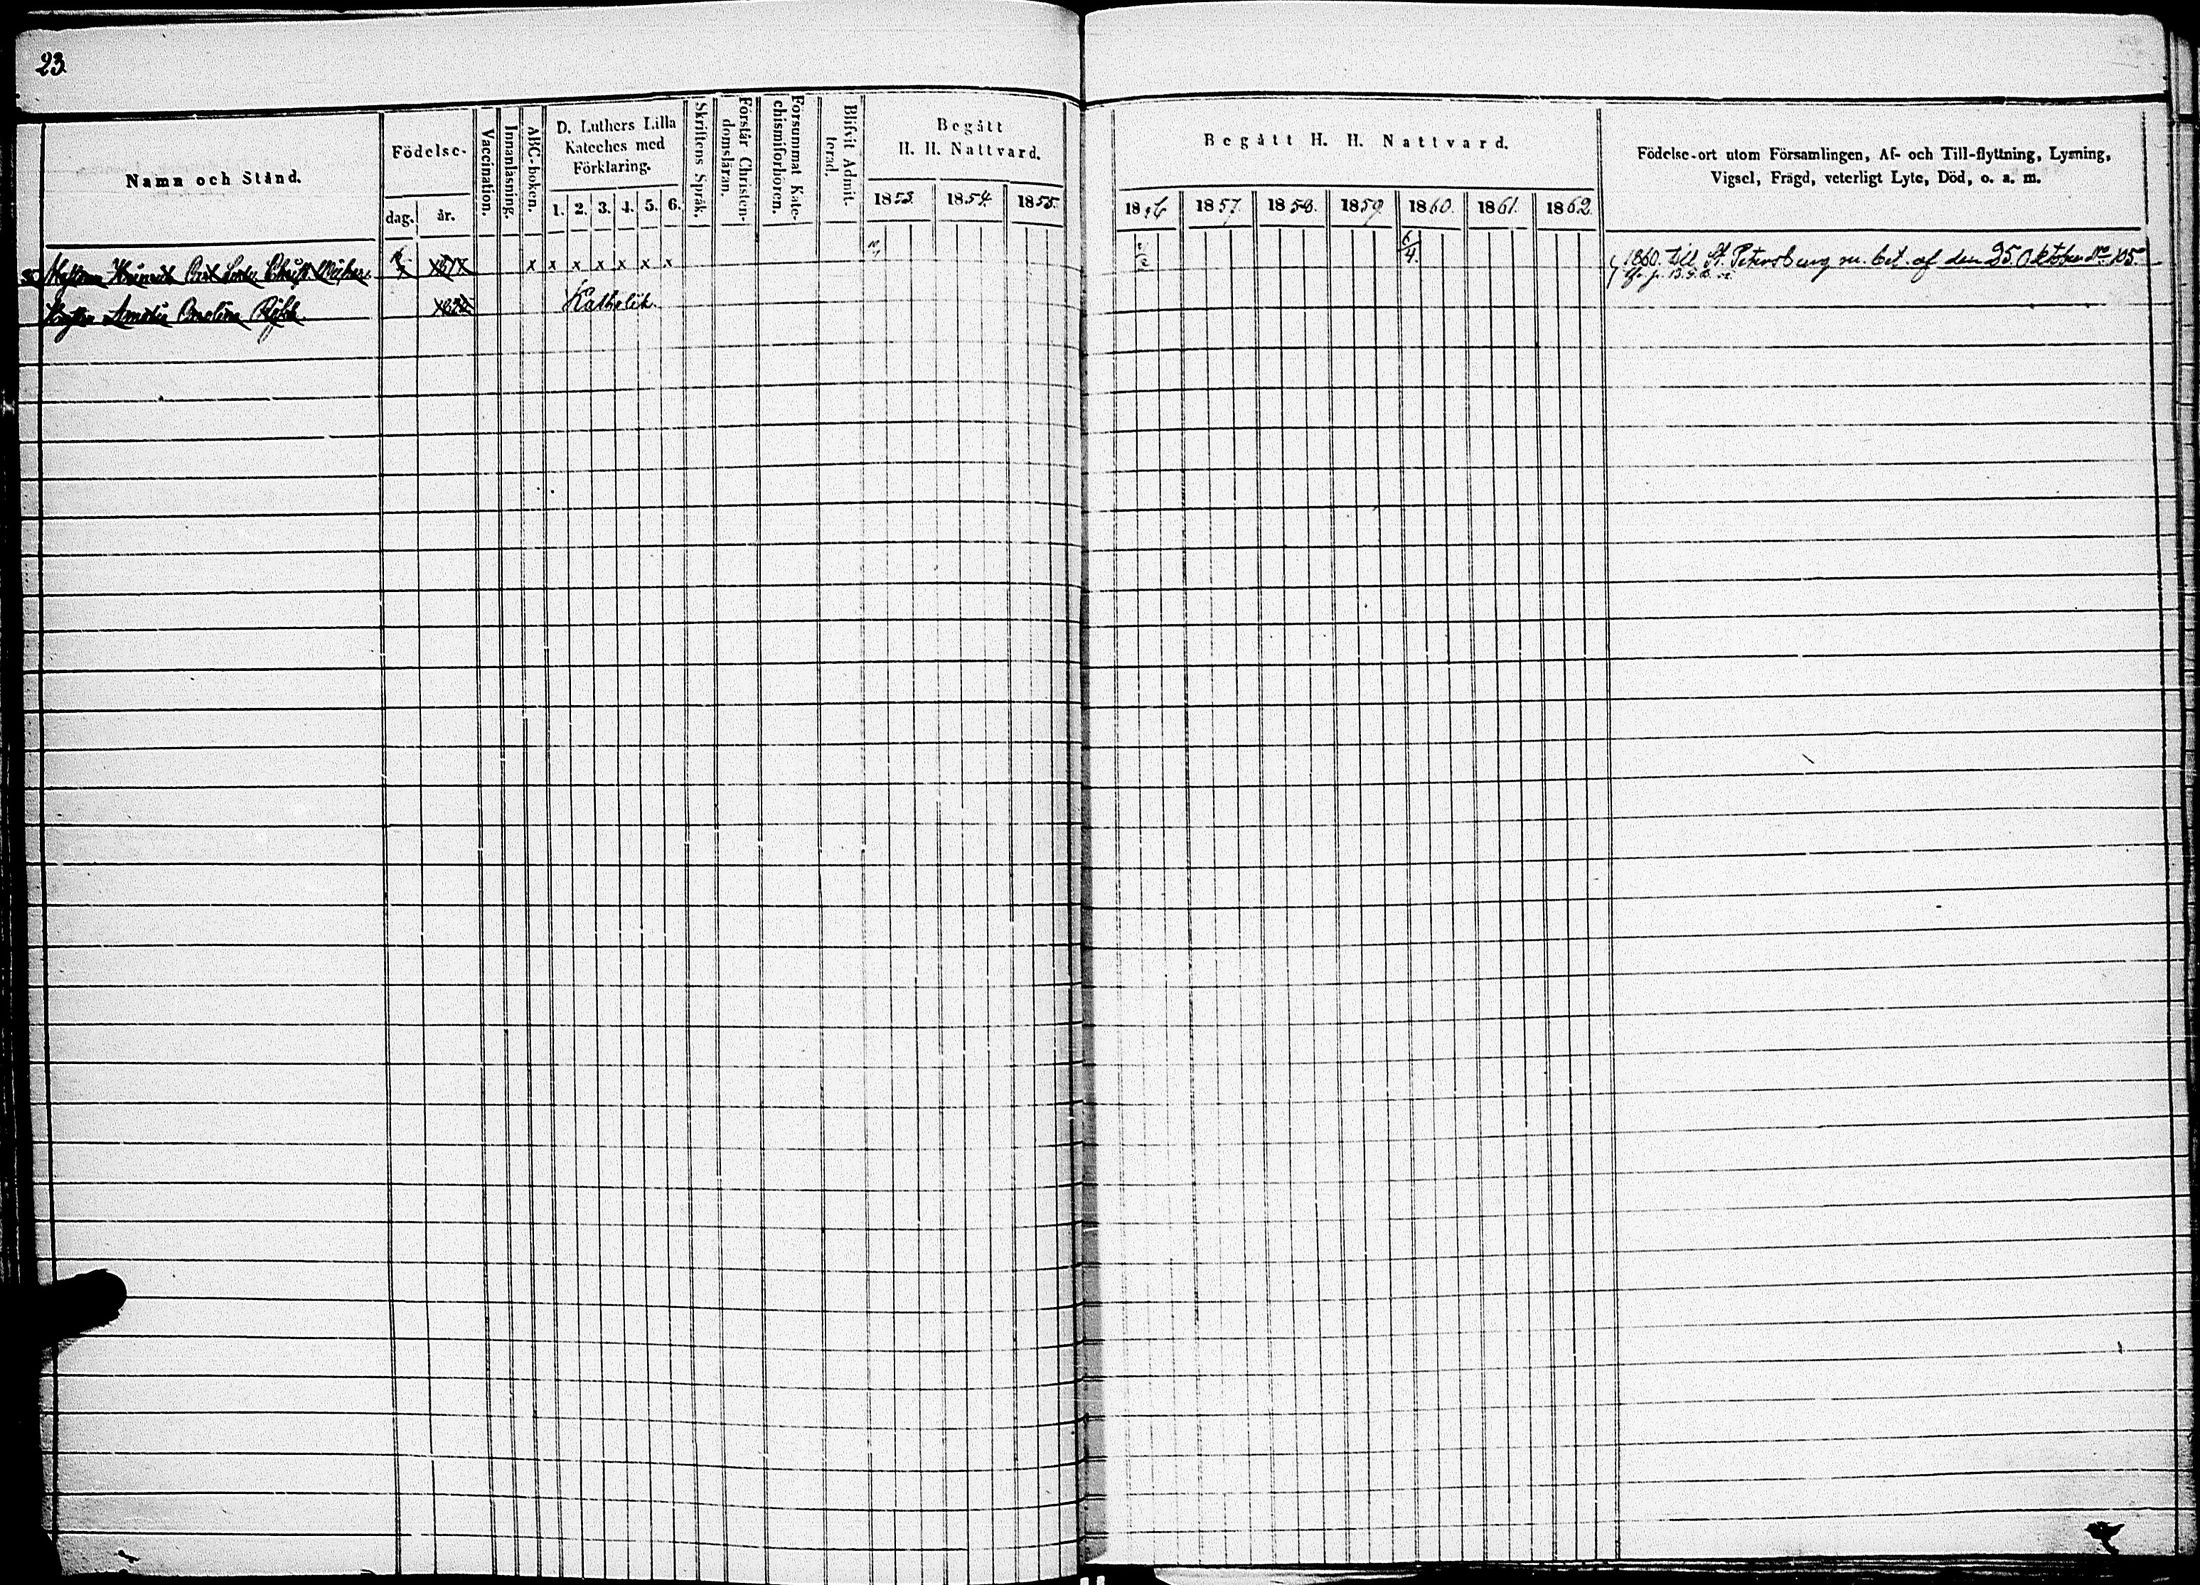 23
Namn och Stånd.
Födelse-
dag.
år.
Vaccination.
Innanläsning.
ABC-boken.
D. Luthers Lilla
Kateches med
Förklaring.
1. 2. 3. 4. 5. 6.
Skriftens Språk.
Förstår Christen-
domsläran.
Försummat Kate-
chismiförhören.
Blifvit Admit-
terad.
Begått
H. H. Nattvard.
1853. 1854. 1855.
Begått H. H. Nattvard.
1856 1857. 1858. 1859. 1860. 1861. 1862.
Födelse-ort utom Församlingen, Af- och Till-flyttning, Lysning,
Vigsel, Frägd, veterligt Lyte, Död, o. a. m.
x x x x x x x
6/4.
1860. till St. Petersburg m. bet. af den 25. Oktober No 105
Hustru Amalia Carolina
Katholik.